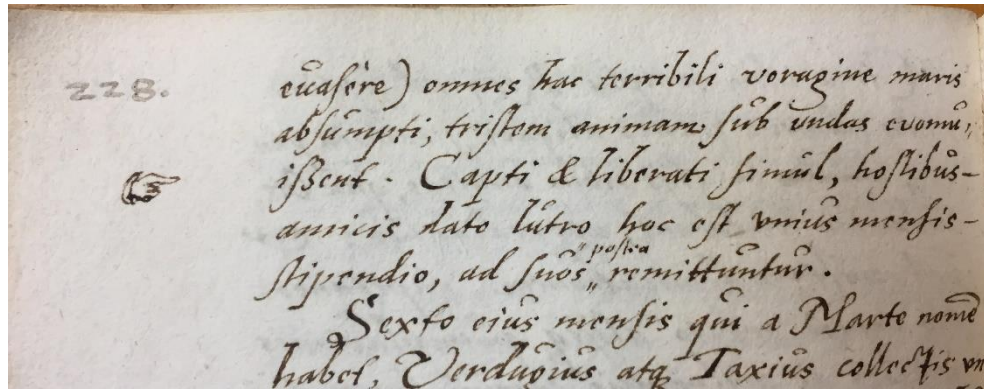 228.
euasère) omnes hac terribili voragine maris
absumpti, tristem animam sub vndas euomu,,
ißent. Capti & liberati simul, hostibus-
amicis dato lutro hoc est vnius mensis-
stipendio, ad suos „ postea remittuntur.
Sexto eius mensis qui a Marte nomē
habet, Verdugius atq Taxius collectis